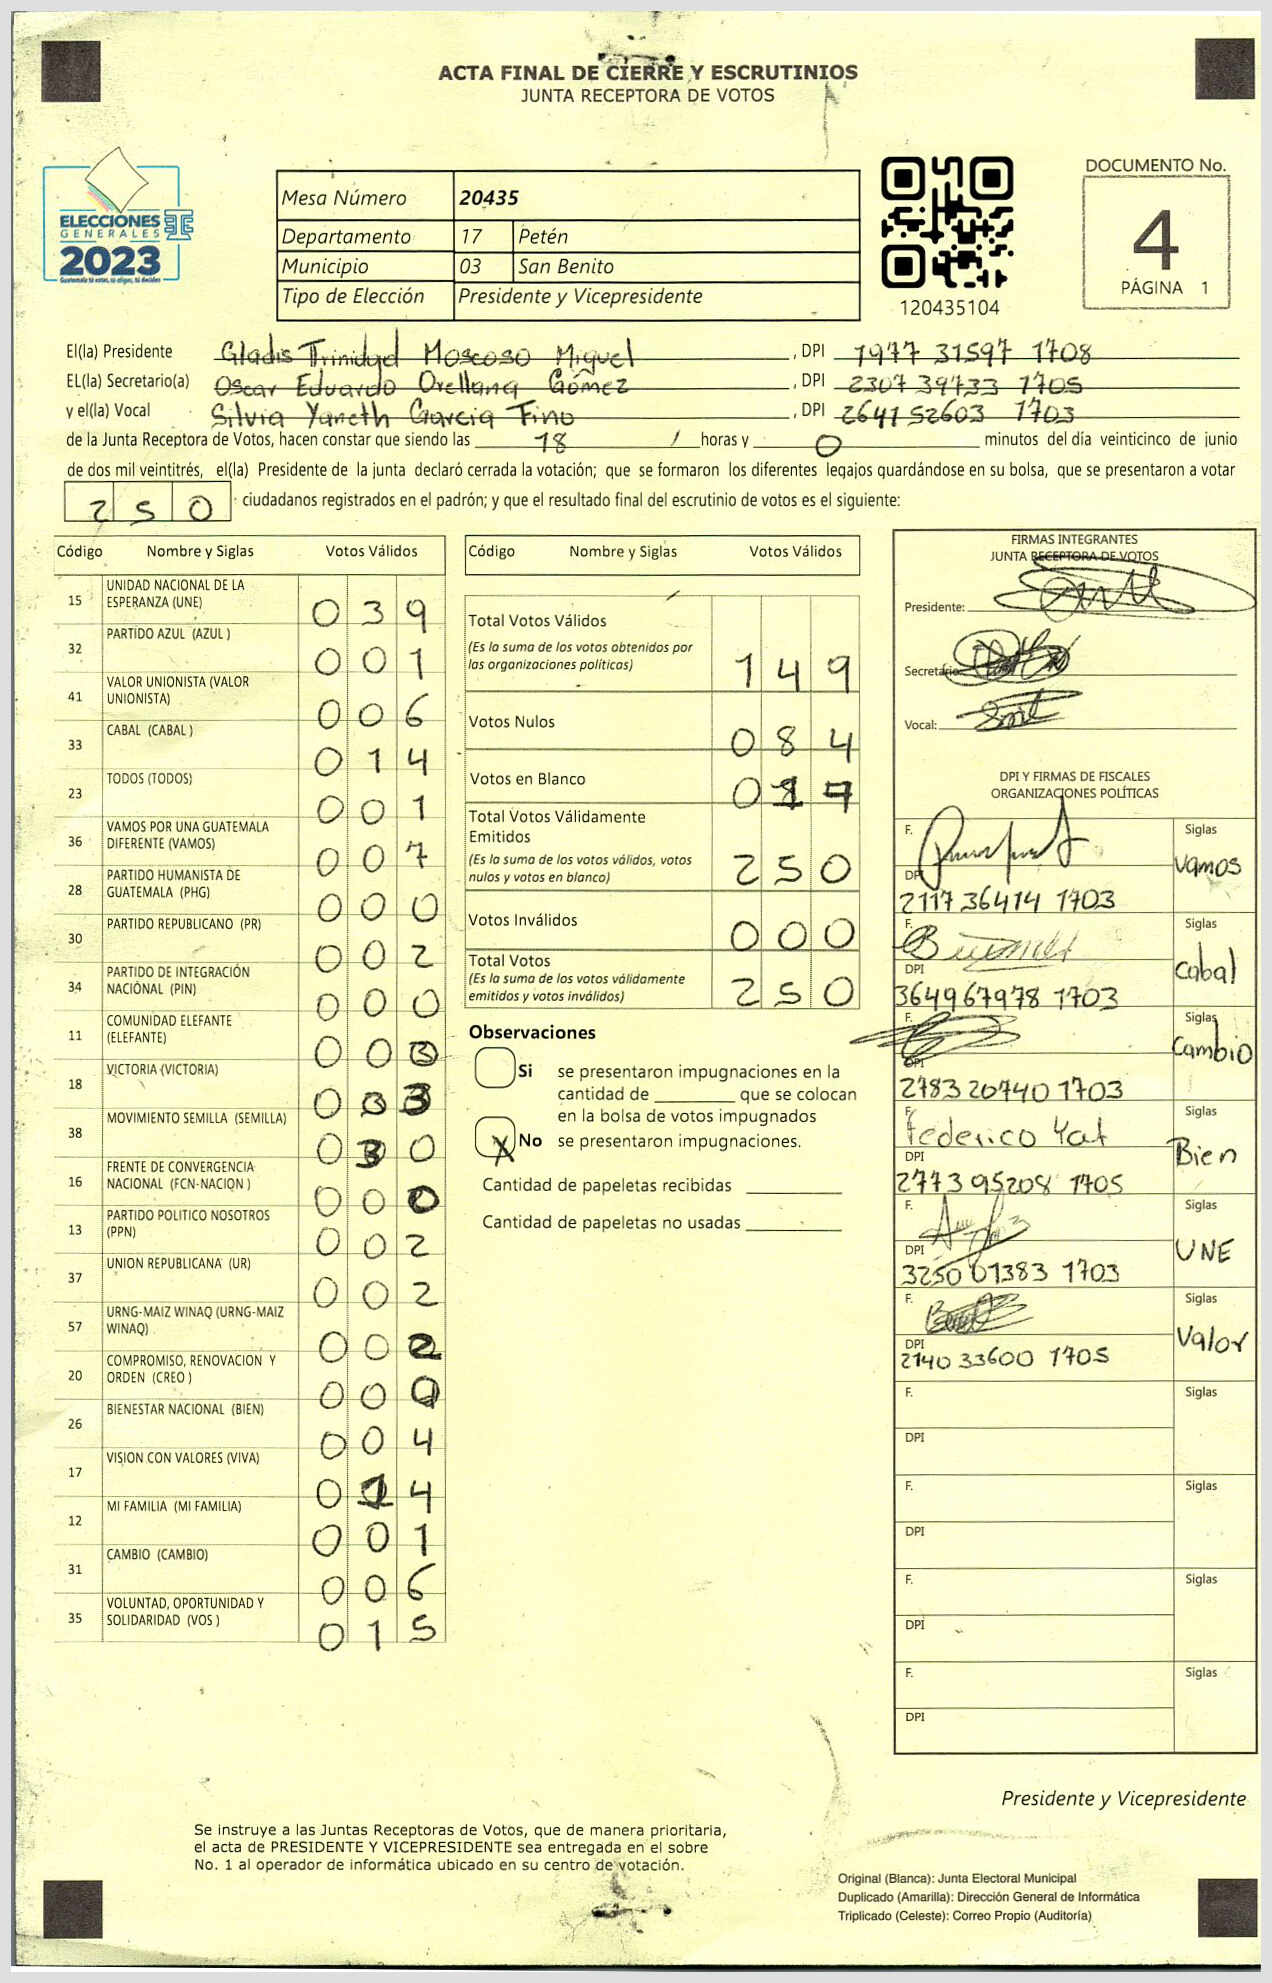 ACTA FINAL DE CIERRE Y ESCRUTINIOS
JUNTA RECEPTORA DE VOTOS
ELECCIONES
GENERALES
2023
Guatemala tú votas, tú eliges, tú decides
Mesa Número 20435
Departamento 17 Petén
Municipio 03 San Benito
Tipo de Elección Presidente y Vicepresidente
120435104
DOCUMENTO No.
4
PÁGINA 1
El(la) Presidente Gladis Trinidad Moscoso Miguel , DPI 1977 31597 1708
EL(la) Secretario(a) Oscar Eduardo Orellana Gómez , DPI 2307 39733 1705
y el(la) Vocal Silvia Yaneth Garcia Tino , DPI 2641 52603 1703
de la Junta Receptora de Votos, hacen constar que siendo las 18 horas y 0 minutos del día veinticinco de junio
de dos mil veintitrés, el(la) Presidente de la junta declaró cerrada la votación; que se formaron los diferentes legajos guardándose en su bolsa, que se presentaron a votar
250 ciudadanos registrados en el padrón; y que el resultado final del escrutinio de votos es el siguiente:
Código Nombre y Siglas Votos Válidos
15 UNIDAD NACIONAL DE LA ESPERANZA (UNE) 039
32 PARTIDO AZUL (AZUL ) 001
41 VALOR UNIONISTA (VALOR UNIONISTA) 006
33 CABAL (CABAL ) 014
23 TODOS (TODOS) 001
36 VAMOS POR UNA GUATEMALA DIFERENTE (VAMOS) 007
28 PARTIDO HUMANISTA DE GUATEMALA (PHG) 000
30 PARTIDO REPUBLICANO (PR) 002
34 PARTIDO DE INTEGRACIÓN NACIONAL (PIN) 000
11 COMUNIDAD ELEFANTE (ELEFANTE) 00
18 VICTORIA (VICTORIA) 0 3
38 MOVIMIENTO SEMILLA (SEMILLA) 030
16 FRENTE DE CONVERGENCIA NACIONAL (FCN-NACION ) 000
13 PARTIDO POLITICO NOSOTROS (PPN) 002
37 UNION REPUBLICANA (UR) 002
57 URNG-MAIZ WINAQ (URNG-MAIZ WINAQ) 002
20 COMPROMISO, RENOVACION Y ORDEN (CREO ) 000
26 BIENESTAR NACIONAL (BIEN) 004
17 VISION CON VALORES (VIVA) 014
12 MI FAMILIA (MI FAMILIA) 001
31 CAMBIO (CAMBIO) 006
35 VOLUNTAD, OPORTUNIDAD Y SOLIDARIDAD (VOS ) 015
Código Nombre y Siglas Votos Válidos
Total Votos Válidos
(Es la suma de los votos obtenidos por
las organizaciones políticas) 149
Votos Nulos 084
Votos en Blanco 017
Total Votos Válidamente
Emitidos
(Es la suma de los votos válidos, votos
nulos y votos en blanco) 250
Votos Inválidos 000
Total Votos
(Es la suma de los votos válidamente
emitidos y votos inválidos) 250
Observaciones
Si se presentaron impugnaciones en la
cantidad de ________ que se colocan
en la bolsa de votos impugnados
X No se presentaron impugnaciones.
Cantidad de papeletas recibidas
Cantidad de papeletas no usadas
FIRMAS INTEGRANTES
JUNTA RECEPTORA DE VOTOS
Presidente:
Secretario:
Vocal:
DPI Y FIRMAS DE FISCALES
ORGANIZACIONES POLÍTICAS
F. Siglas Vamos
DPI 2117 36414 1703
F. Siglas Cabal
DPI 3649 67978 1703
F. Siglas Cambio
DPI 2783 20740 1703
F. Federico Yat Siglas Bien
DPI 2773 95208 1705
F. Siglas UNE
DPI 3250 01383 1703
F. Siglas Valor
DPI 2140 33600 1705
F. Siglas
DPI
F. Siglas
DPI
F. Siglas
DPI
F. Siglas
DPI
Presidente y Vicepresidente
Se instruye a las Juntas Receptoras de Votos, que de manera prioritaria,
el acta de PRESIDENTE Y VICEPRESIDENTE sea entregada en el sobre
No. 1 al operador de informática ubicado en su centro de votación.
Original (Blanca): Junta Electoral Municipal
Duplicado (Amarilla): Dirección General de Informática
Triplicado (Celeste): Correo Propio (Auditoría)